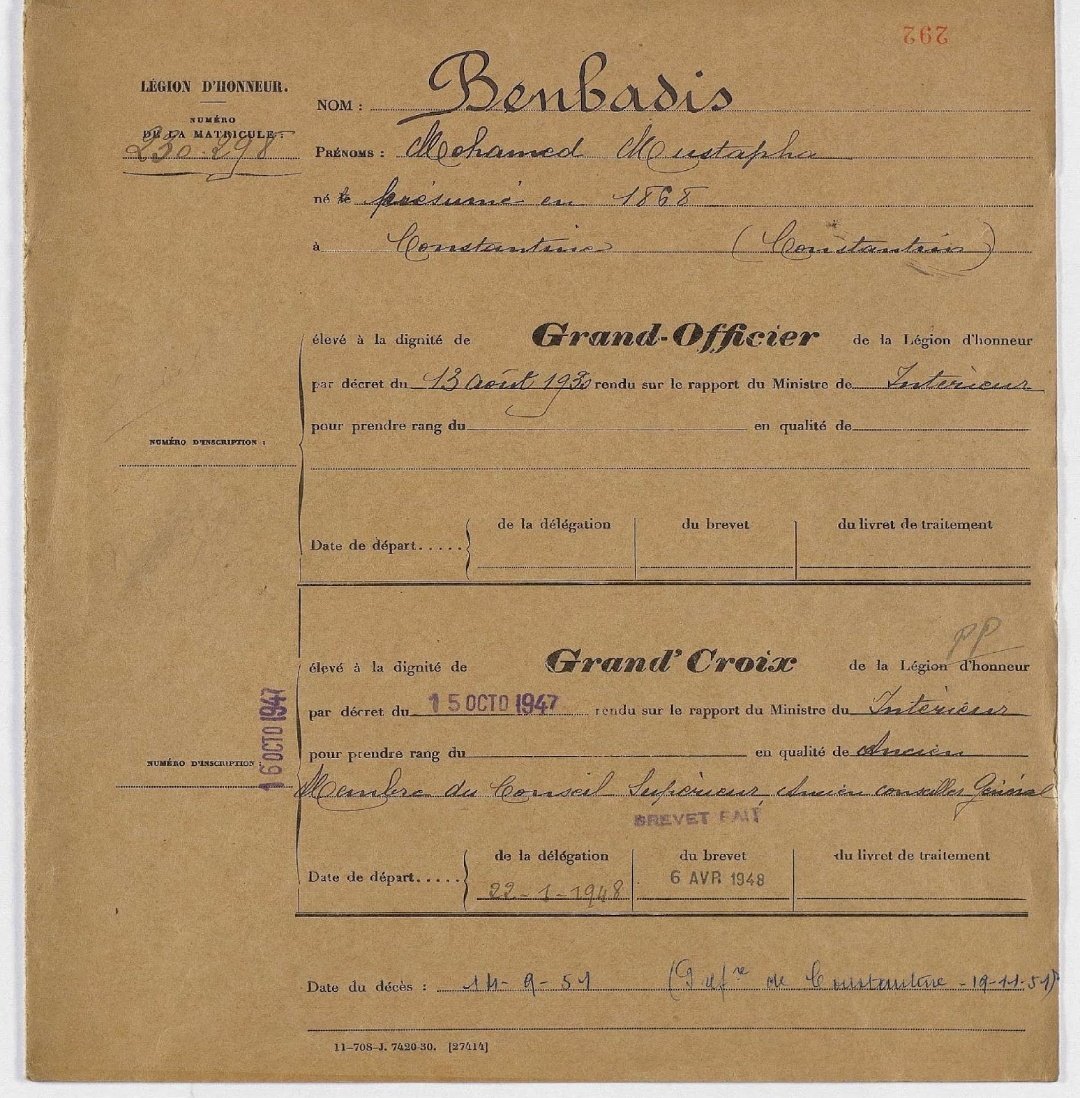 292
LÉGION D'HONNEUR.
NUMÉRO
DE LA MATRICULE :
230.298
NOM : Benbadis
PRÉNOMS : Mohamed Mustapha
né le présumé en 1868
à Constantine (Constantine)
élevé à la dignité de Grand-Officier de la Légion d'honneur
par décret du 13 août 1930 rendu sur le rapport du Ministre de Intérieur
pour prendre rang du en qualité de
NUMÉRO D'INSCRIPTION :
de la délégation du brevet du livret de traitement
Date de départ.....
PP
élevé à la dignité de Grand'Croix de la Légion d'honneur
par décret du 15 OCTO 1947 rendu sur le rapport du Ministre du Intérieur
16 OCTO 1947
pour prendre rang du en qualité de Ancien
NUMÉRO D'INSCRIPTION
Membre du Conseil Supérieur, Ancien conseiller Général
BREVET FAIT
de la délégation du brevet du livret de traitement
Date de départ..... 22-1-1948 6 AVR 1948
Date du décès : 14-9-51 (Préfre de Constantine - 19-11-51)
11-708-J. 7420-30. [27414]